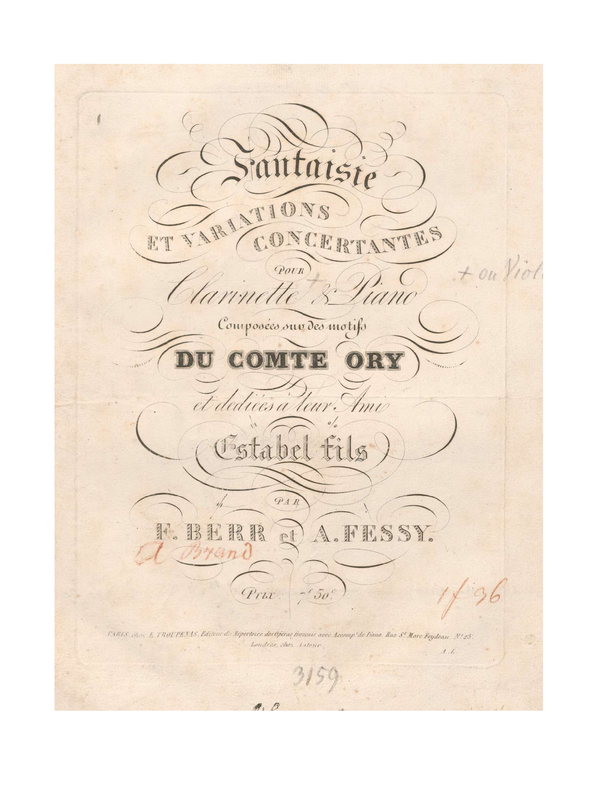 Fantaisie
ET VARIATIONS
CONCERTANTES
POUR
Clarinette + & Piano
+ ou Viol
Composées sur des motifs
DU COMTE ORY
et dediées à leur Ami
Estabel fils
PAR
F. BERR et A. FESSY.
A Brand
Prix 7f 50c
1f 36
PARIS, chez E. TROUPENAS, Editeur du Repertoire des Opéras français avec Accomp.t de Piano, Rue St. Marc Feydeau No. 23.
Londres, chez Latour.
3159